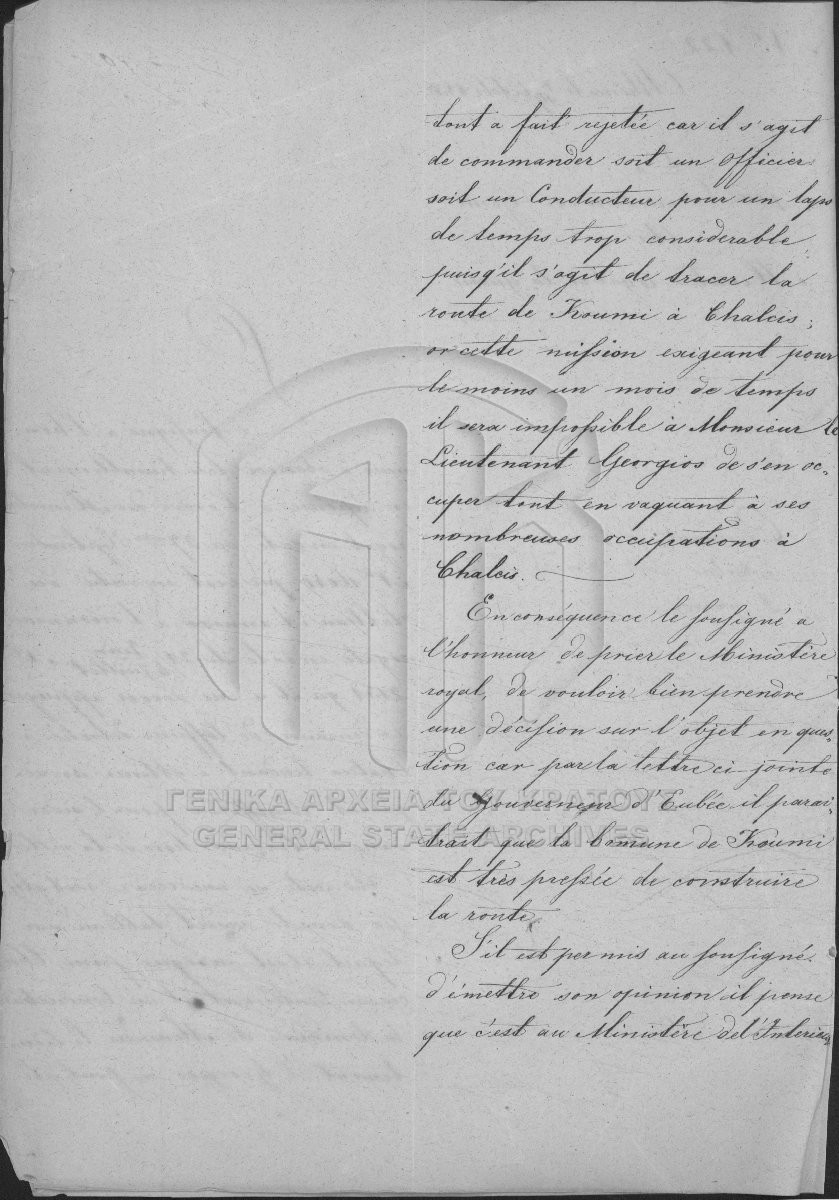 tout a fait rejetée car il s'agit
de commander soit un officier
soit un Conducteur pour un laps
de temps trop considerable
puisq'il s'agit de tracer la
route de Koumi à Chalcis;
or cette mission exigeant pour
le moins un mois de temps
il sera impossible à Monsieur le
Lieutenant Georgios de s'en oc-
cuper tout en vaquant à ses
nombreuses occupations à
Chalcis.
En conséquence le sousigné a
l'honneur de prier le Ministère
royal, de vouloir bien prendre
une décision sur l'objet en ques-
tion car par la lettre ci jointe
du Gouverneur d'Eubée il parai-
trait que la Comune de Koumi
est très pressée de construire
la route
S'il est permis au sousigné
d'émettre son opinion il pense
que c'est au Ministère de l'Interieur
ΓΕΝΙΚΑ ΑΡΧΕΙΑ ΤΟΥ ΚΡΑΤΟΥΣ
GENERAL STATE ARCHIVES